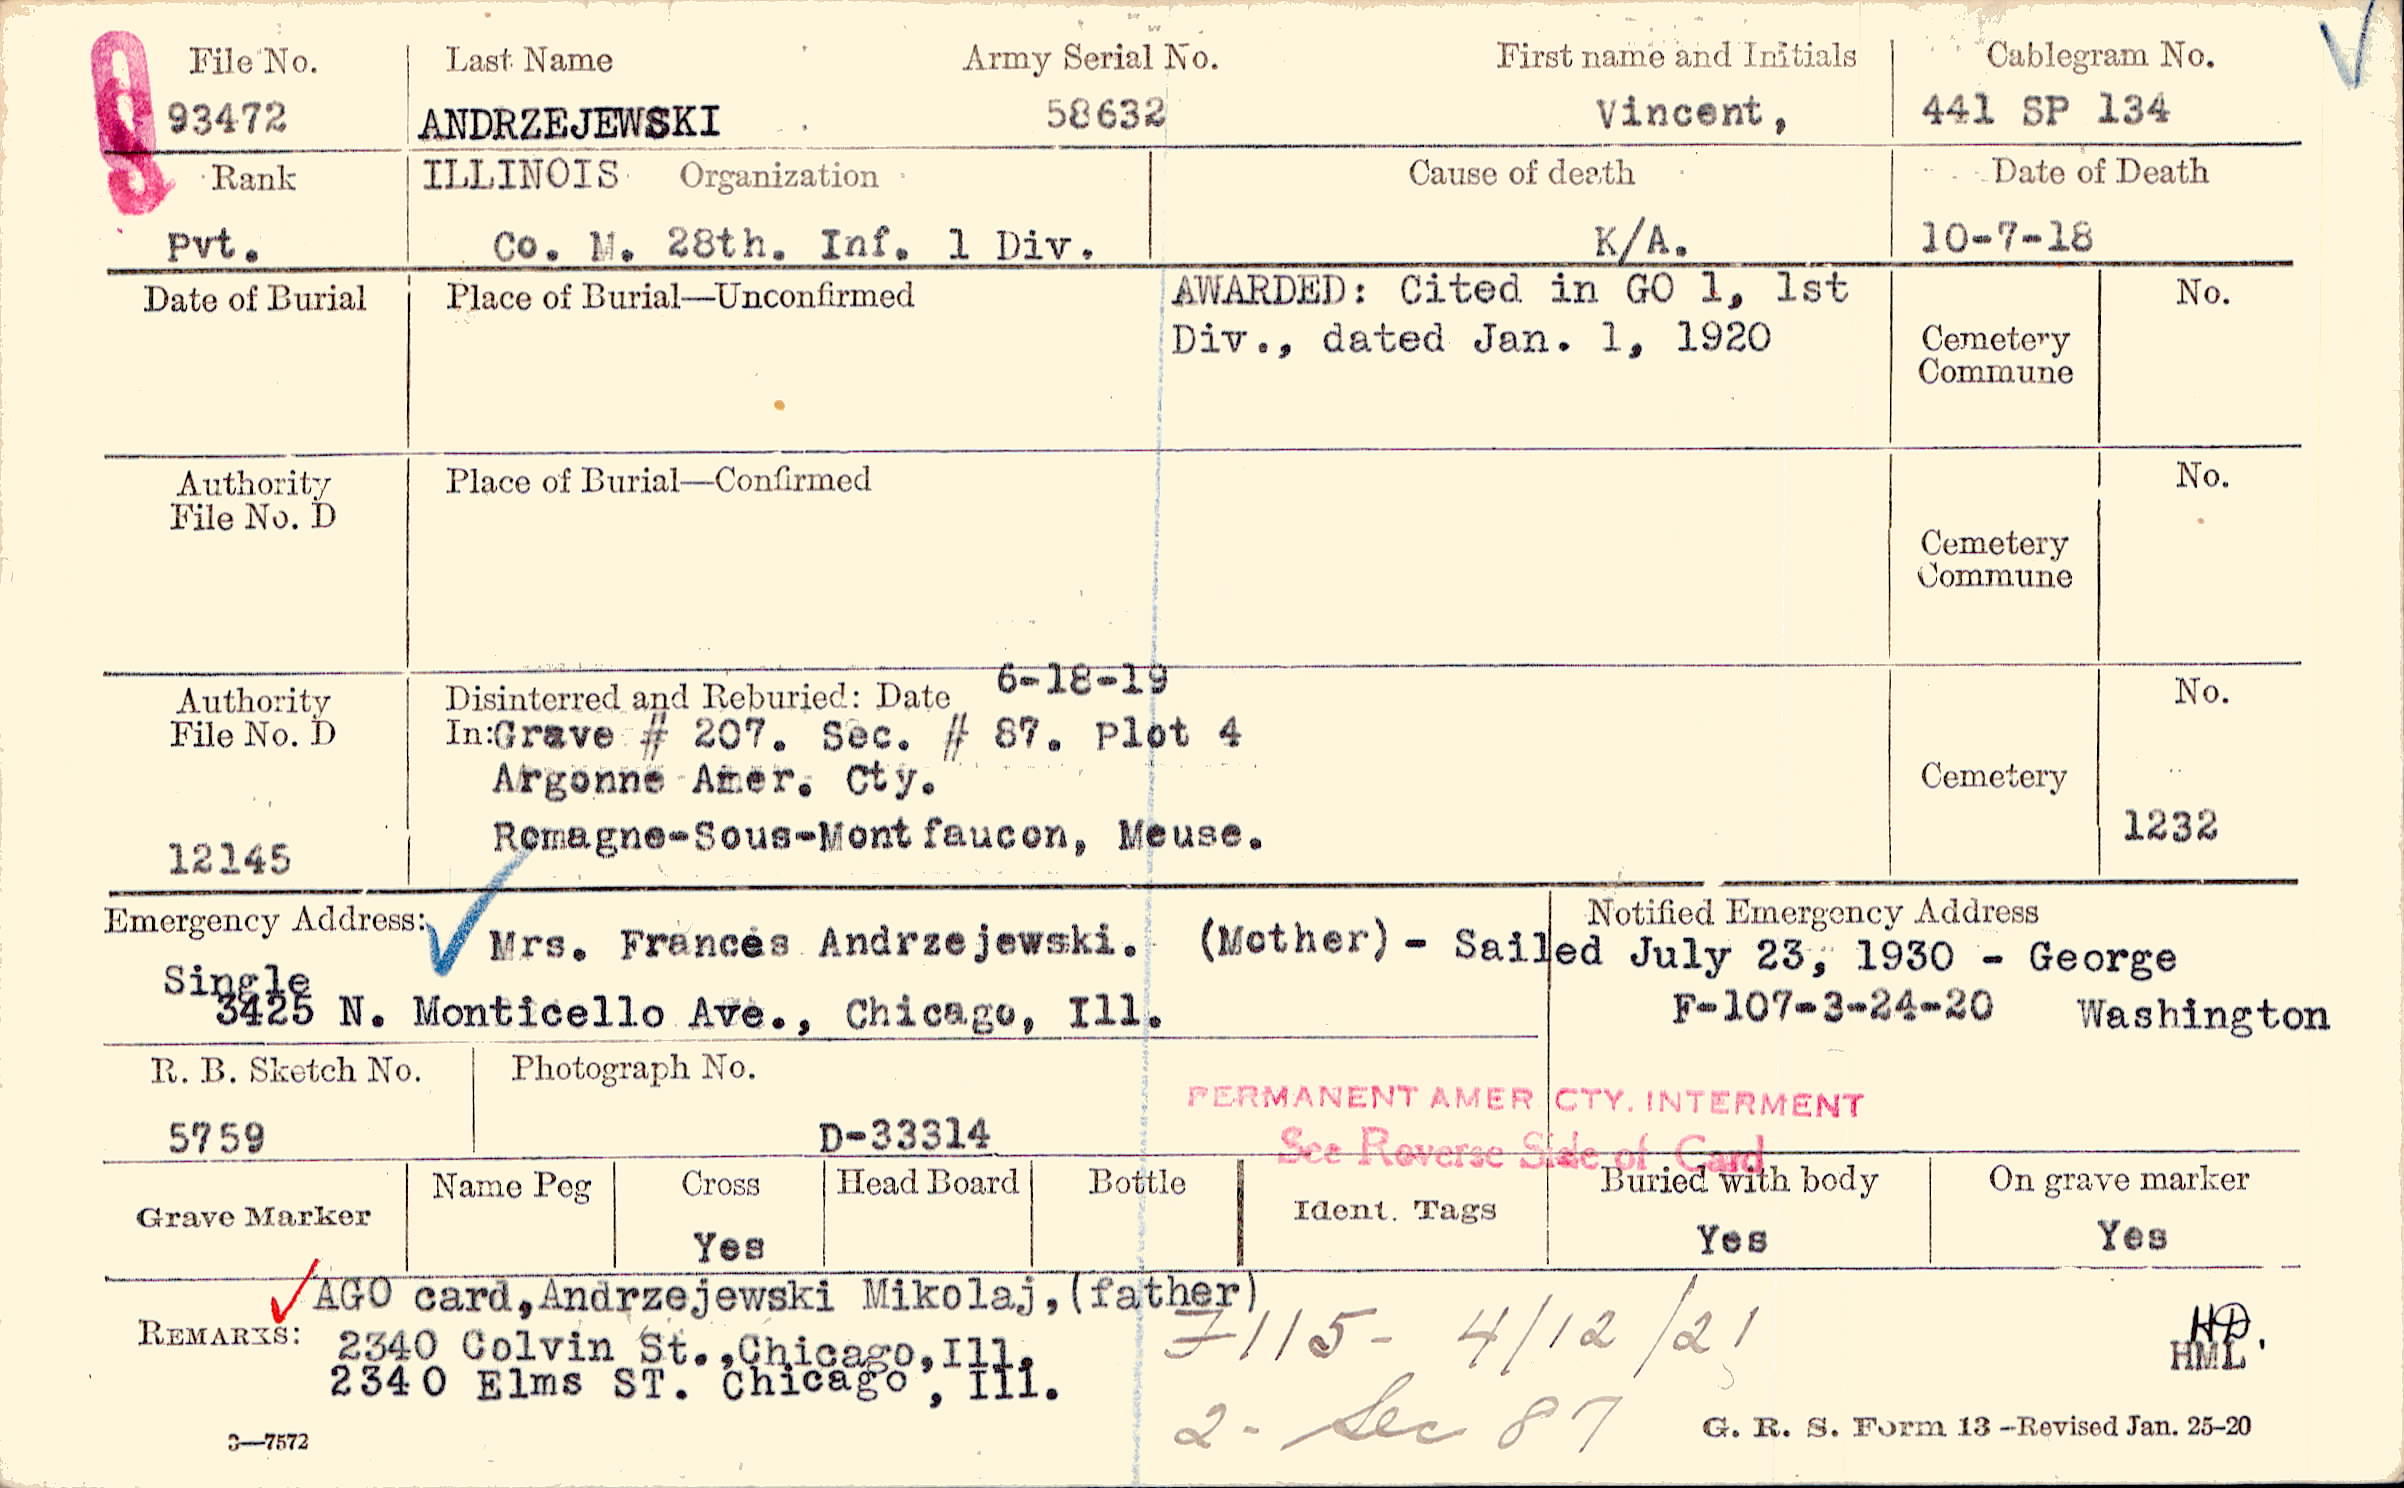 File No. Last Name Army Serial No. First name and Initials Cablegram No.
93472 ANDRZEJEWSKI 58632 Vincent, 441 SP 134
Rank ILLINOIS Organization Cause of death Date of Death
Pvt. Co. M. 28th. Inf. 1 Div. K/A. 10-7-18
Date of Burial Place of Burial—Unconfirmed AWARDED: Cited in GO 1, 1st No.
Div., dated Jan. 1, 1920 Cemetery
Commune
Authority Place of Burial—Confirmed No.
File No. D
Cemetery
Commune
6-18-19
Authority Disinterred and Reburied: Date No.
File No. D In: Grave # 207. Sec. # 87. Plot 4
Argonne Amer. Cty. Cemetery
Romagne-Sous-Montfaucon, Meuse. 1232
12145
Emergency Address: Notified Emergency Address
Mrs. Frances Andrzejewski. (Mother) - Sailed July 23, 1930 - George
Single
3425 N. Monticello Ave., Chicago, Ill. F-107-3-24-20 Washington
R. B. Sketch No. Photograph No.
PERMANENT AMER CTY. INTERMENT
5759 D-33314
See Reverse Side of Card
Grave Marker Name Peg Cross Head Board Bottle Ident. Tags Buried with body On grave marker
Yes Yes Yes
AGO card, Andrzejewski Mikolaj, (father)
REMARKS: 2340 Colvin St., Chicago, Ill. 115- 4/12/21 HD.
HML
2340 Elms ST. Chicago, Ill.
2- Sec 87
3—7572 G. R. S. Form 13 -Revised Jan. 25-20